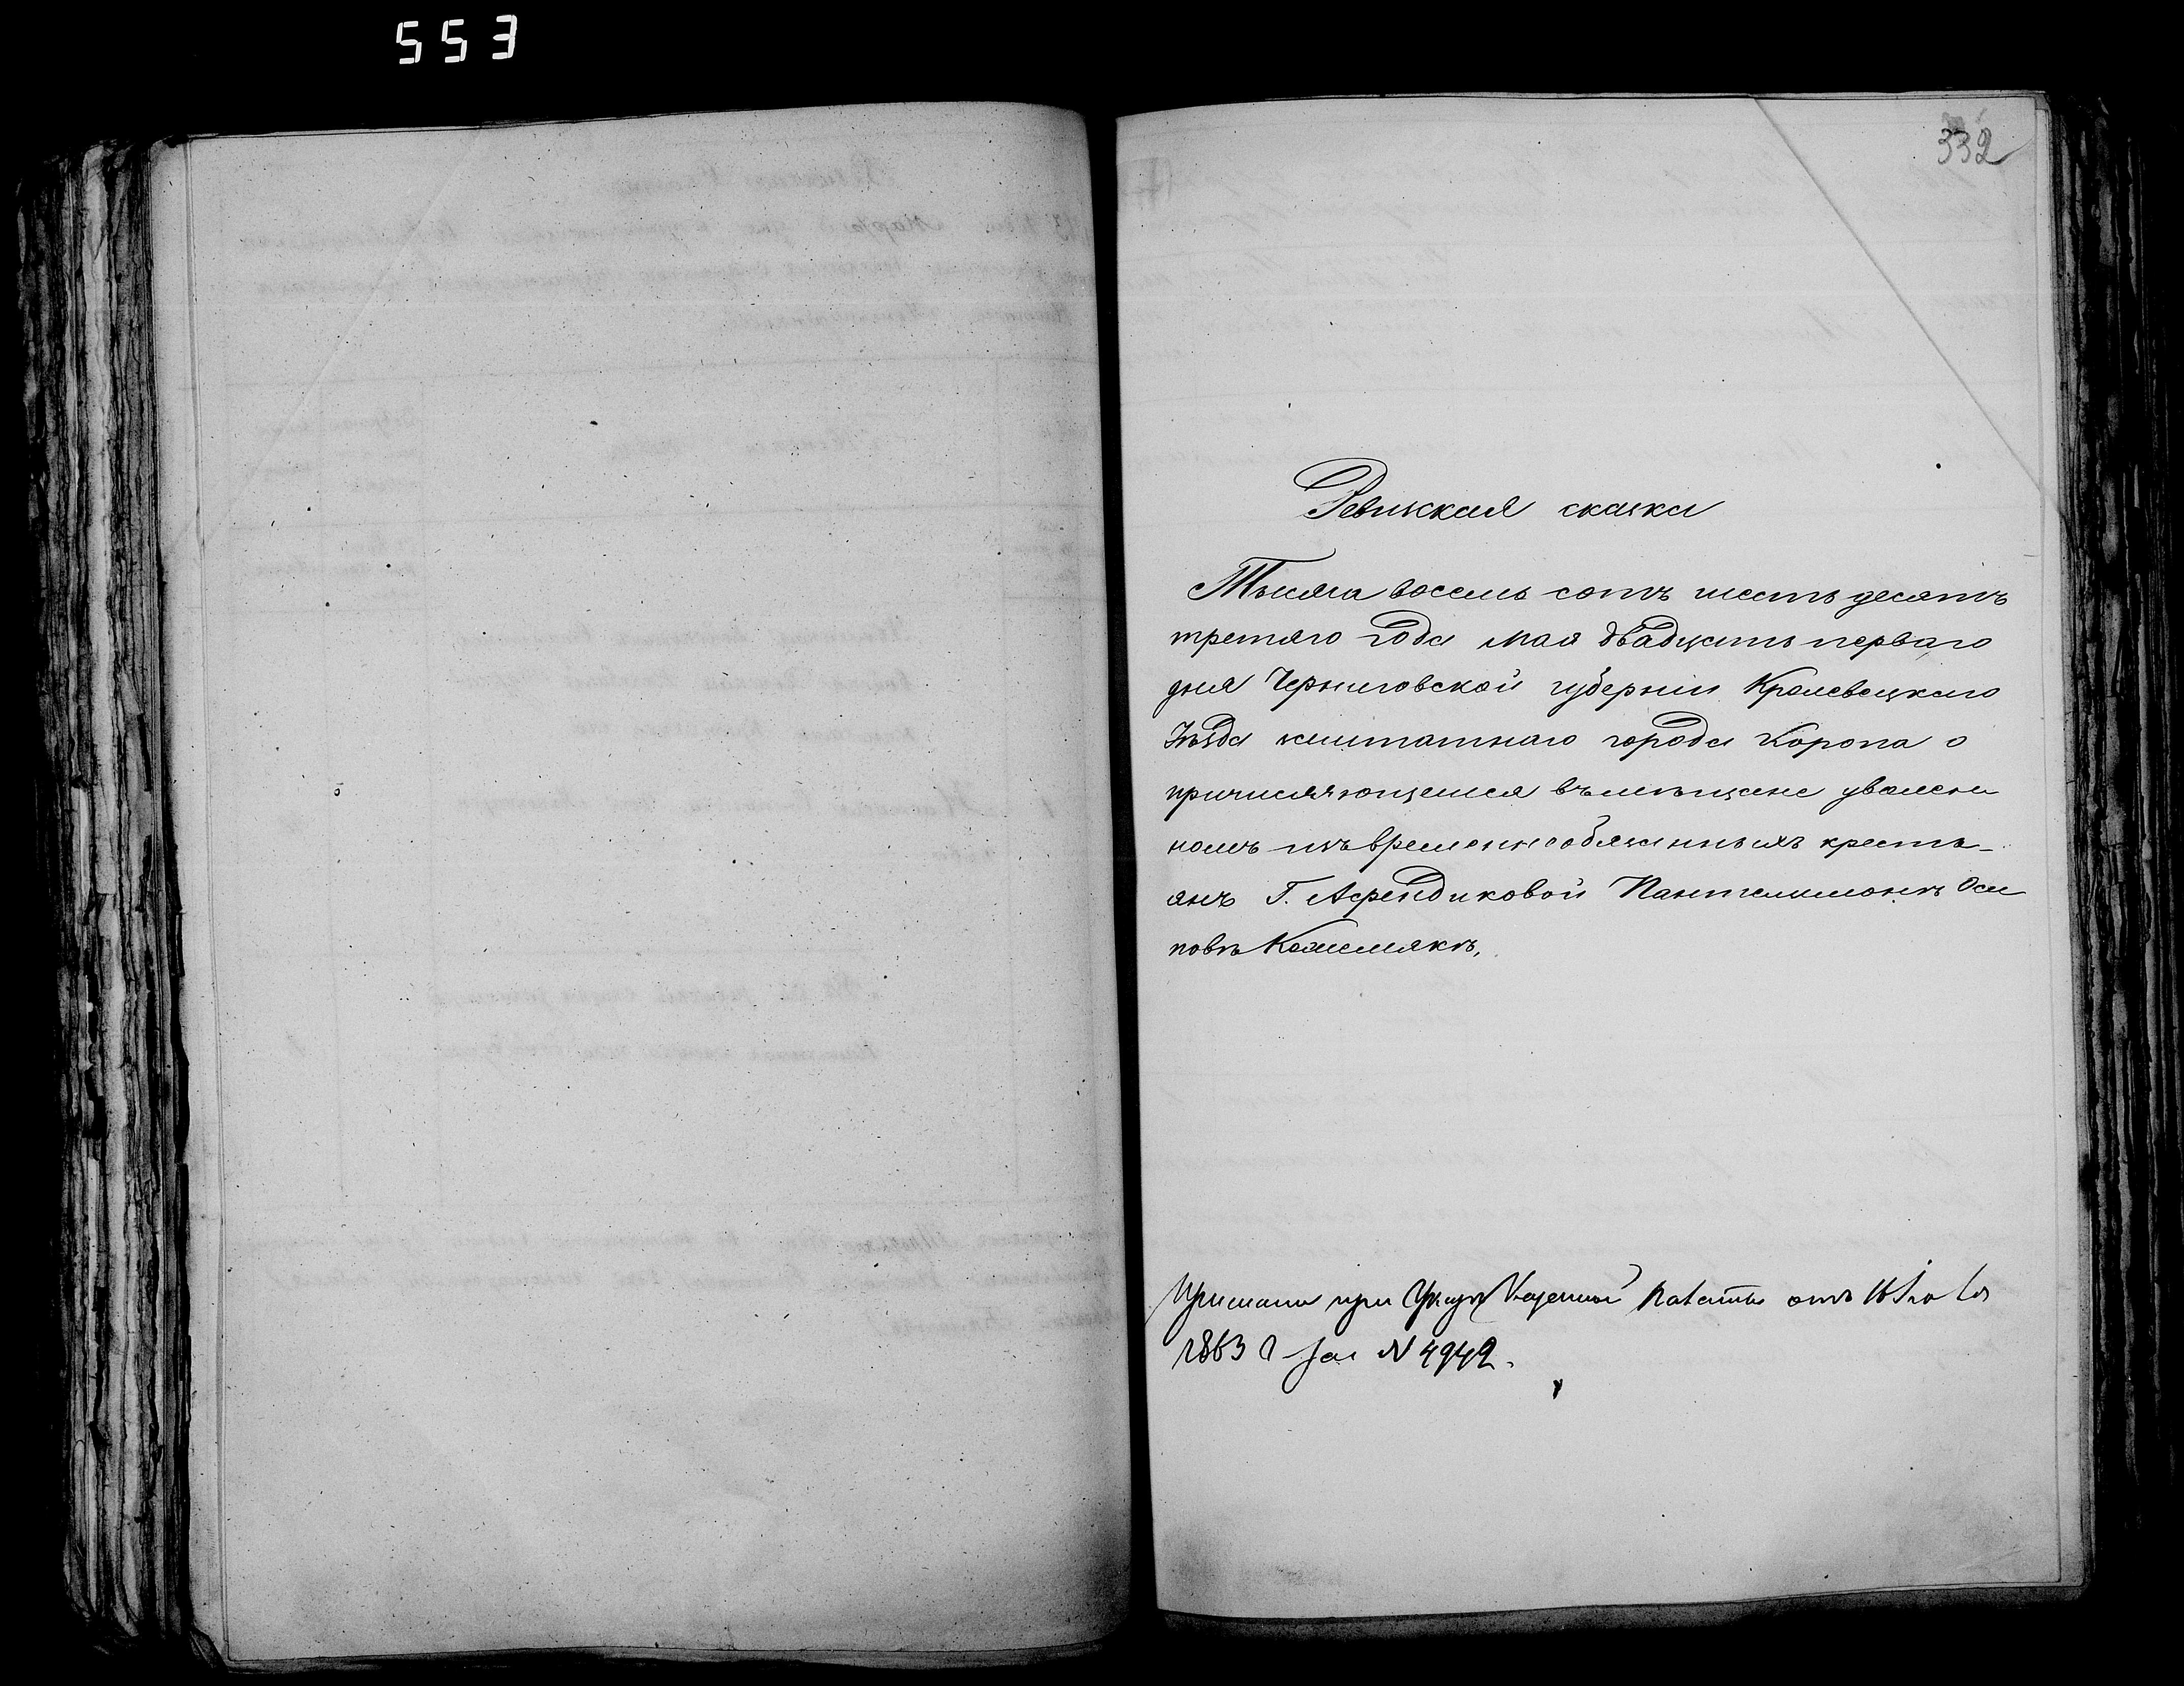 553
332
Ревизская сказка
Тысяча восемь сотъ шестьдесятъ
третяго года мая двадцать перваго
дня Черниговской губерніи Кролевецкаго
уѣзда заштатнаго города Коропа о
причисляющемся въ мѣщане уволен
номъ изъ временнообязанныхъ кресть-
янъ Г. Афендиковой Пантелимонѣ Оси
повѣ Кожемякѣ,
при Указѣ Казенной Палаты отъ 16 Іюля
1863 г за № 4942.